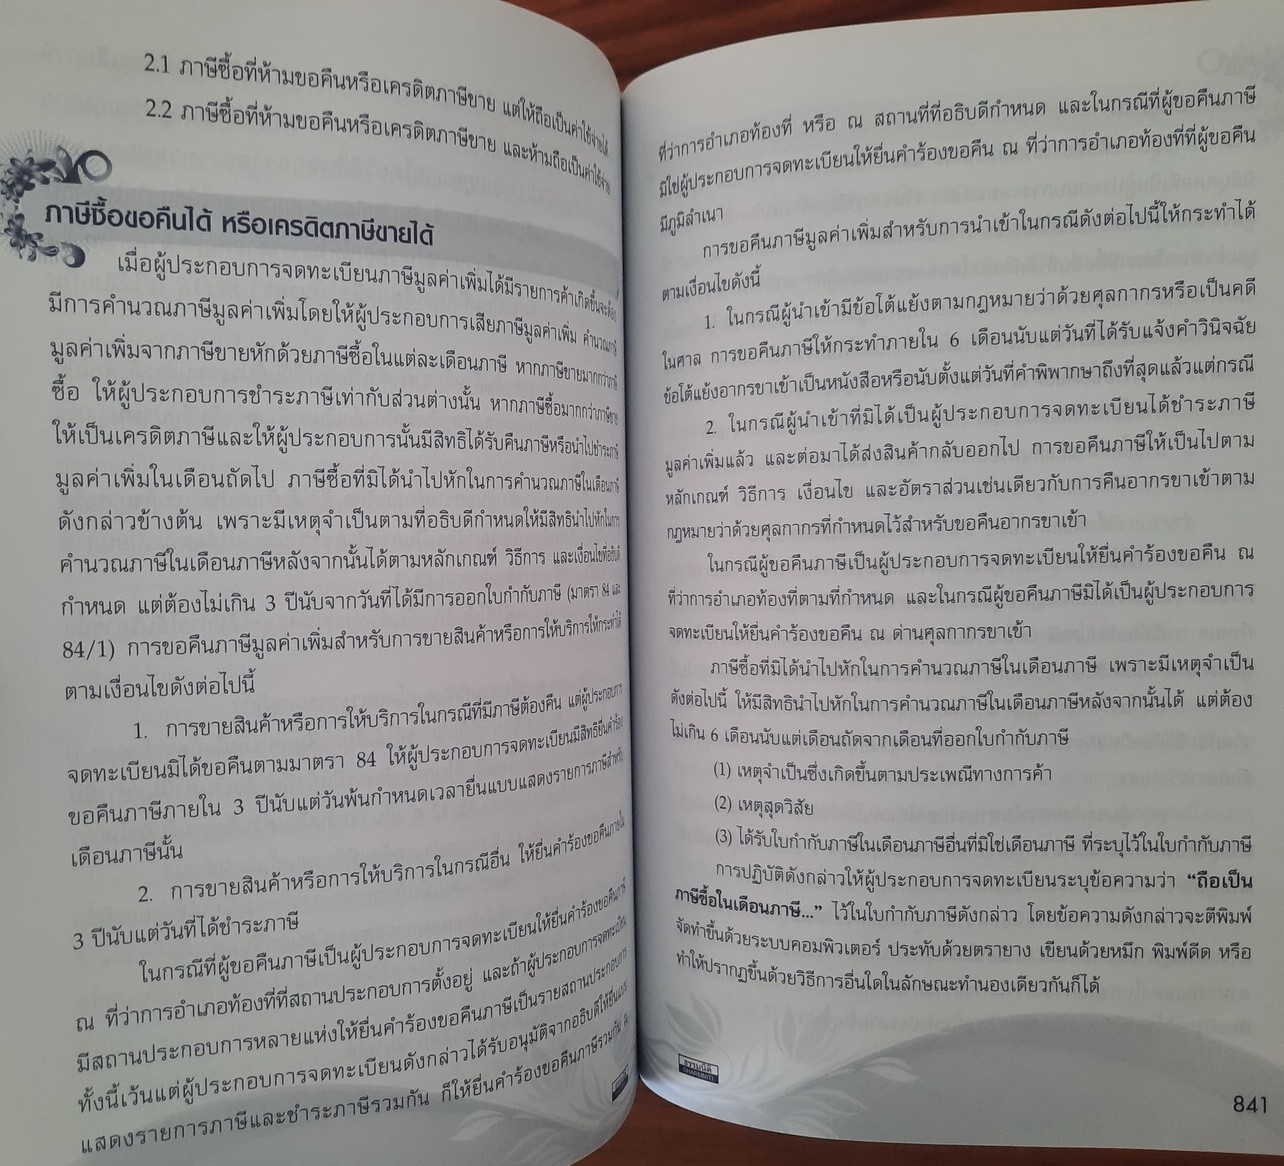 2.1 ภาษีซื้อที่ห้ามขอคืนหรือเครดิตภาษีขาย แต่ให้ถือเป็นค่าใช้จ่ายได้
2.2 ภาษีซื้อที่ห้ามขอคืนหรือเครดิตภาษีขาย และห้ามถือเป็นค่าใช้จ่าย
ภาษีซื้อขอคืนได้ หรือเครดิตภาษีขายได้
เมื่อผู้ประกอบการจดทะเบียนภาษีมูลค่าเพิ่มได้มีรายการค้าเกิดขึ้น
มีการคำนวณภาษีมูลค่าเพิ่มโดยให้ผู้ประกอบการเสียภาษีมูลค่าเพิ่ม คำนวณภาษี
มูลค่าเพิ่มจากภาษีขายหักด้วยภาษีซื้อในแต่ละเดือนภาษี หากภาษีขายมากกว่าภาษี
ซื้อ ให้ผู้ประกอบการชำระภาษีเท่ากับส่วนต่างนั้น หากภาษีซื้อมากกว่าภาษีขาย
ให้เป็นเครดิตภาษีและให้ผู้ประกอบการนั้นมีสิทธิได้รับคืนภาษีหรือนำไปชำระภาษี
มูลค่าเพิ่มในเดือนถัดไป ภาษีซื้อที่มิได้นำไปหักในการคำนวณภาษีในเดือนภาษี
ดังกล่าวข้างต้น เพราะมีเหตุจำเป็นตามที่อธิบดีกำหนดให้มีสิทธินำไปหักในการ
คำนวณภาษีในเดือนภาษีหลังจากนั้นได้ตามหลักเกณฑ์ วิธีการ และเงื่อนไขที่อธิบดี
กำหนด แต่ต้องไม่เกิน 3 ปีนับจากวันที่ได้มีการออกใบกำกับภาษี (มาตรา 84 และ
84/1) การขอคืนภาษีมูลค่าเพิ่มสำหรับการขายสินค้าหรือการให้บริการให้กระทำได้
ตามเงื่อนไขดังต่อไปนี้
1. การขายสินค้าหรือการให้บริการในกรณีที่มีภาษีต้องคืน แต่ผู้ประกอบการ
จดทะเบียนมิได้ขอคืนตามมาตรา 84 ให้ผู้ประกอบการจดทะเบียนมีสิทธิยื่นคำร้อง
ขอคืนภาษีภายใน 3 ปีนับแต่วันพ้นกำหนดเวลายื่นแบบแสดงรายการภาษีสำหรับ
เดือนภาษีนั้น
2. การขายสินค้าหรือการให้บริการในกรณีอื่น ให้ยื่นคำร้องขอคืนภายใน
3 ปีนับแต่วันที่ได้ชำระภาษี
ในกรณีที่ผู้ขอคืนภาษีเป็นผู้ประกอบการจดทะเบียนให้ยื่นคำร้องขอคืนภาษี
ณ ที่ว่าการอำเภอท้องที่ที่สถานประกอบการตั้งอยู่ และถ้าผู้ประกอบการจดทะเบียน
มีสถานประกอบการหลายแห่งให้ยื่นคำร้องขอคืนภาษีเป็นรายสถานประกอบการ
ทั้งนี้เว้นแต่ผู้ประกอบการจดทะเบียนดังกล่าวได้รับอนุมัติจากอธิบดีให้ยื่นแบบ
แสดงรายการภาษีและชำระภาษีรวมกัน ก็ให้ยื่นคำร้องขอคืนภาษีรวมกัน ณ
ที่ว่าการอำเภอท้องที่ หรือ ณ สถานที่ที่อธิบดีกำหนด และในกรณีที่ผู้ขอคืนภาษี
มิใช่ผู้ประกอบการจดทะเบียนให้ยื่นคำร้องขอคืน ณ ที่ว่าการอำเภอท้องที่ที่ผู้ขอคืน
มีภูมิลำเนา
การขอคืนภาษีมูลค่าเพิ่มสำหรับการนำเข้าในกรณีดังต่อไปนี้ให้กระทำได้
ตามเงื่อนไขดังนี้
1. ในกรณีที่ผู้นำเข้ามีข้อโต้แย้งตามกฎหมายว่าด้วยศุลกากรหรือเป็นคดี
ในศาล การขอคืนภาษีให้กระทำภายใน 6 เดือนนับแต่วันที่ได้รับแจ้งคำวินิจฉัย
ข้อโต้แย้งอากรขาเข้าเป็นหนังสือหรือนับตั้งแต่วันที่คำพิพากษาถึงที่สุดแล้วแต่กรณี
2. ในกรณีผู้นำเข้าที่มิได้เป็นผู้ประกอบการจดทะเบียนได้ชำระภาษี
มูลค่าเพิ่มแล้ว และต่อมาได้ส่งสินค้ากลับออกไป การขอคืนภาษีให้เป็นไปตาม
หลักเกณฑ์ วิธีการ เงื่อนไข และอัตราส่วนเช่นเดียวกับการคืนอากรขาเข้าตาม
กฎหมายว่าด้วยศุลกากรที่กำหนดไว้สำหรับขอคืนอากรขาเข้า
ในกรณีผู้ขอคืนภาษีเป็นผู้ประกอบการจดทะเบียนให้ยื่นคำร้องขอคืน ณ
ที่ว่าการอำเภอท้องที่ตามที่กำหนด และในกรณีผู้ขอคืนภาษีมิได้เป็นผู้ประกอบการ
จดทะเบียนให้ยื่นคำร้องขอคืน ณ ด่านศุลกากรขาเข้า
ภาษีซื้อที่มิได้นำไปหักในการคำนวณภาษีในเดือนภาษี เพราะมีเหตุจำเป็น
ดังต่อไปนี้ ให้มีสิทธินำไปหักในการคำนวณภาษีในเดือนภาษีหลังจากนั้นได้ แต่ต้อง
ไม่เกิน 6 เดือนนับแต่เดือนถัดจากเดือนที่ออกใบกำกับภาษี
(1) เหตุจำเป็นซึ่งเกิดขึ้นตามประเพณีทางการค้า
(2) เหตุสุดวิสัย
(3) ได้รับใบกำกับภาษีในเดือนภาษีอื่นที่มิใช่เดือนภาษี ที่ระบุไว้ในใบกำกับภาษี
การปฏิบัติดังกล่าวให้ผู้ประกอบการจดทะเบียนระบุข้อความว่า “ถือเป็น
ภาษีซื้อในเดือนภาษี...” ไว้ในใบกำกับภาษีดังกล่าว โดยข้อความดังกล่าวจะตีพิมพ์
จัดทำขึ้นด้วยระบบคอมพิวเตอร์ ประทับด้วยตรายาง เขียนด้วยหมึก พิมพ์ดีด หรือ
ทำให้ปรากฏขึ้นด้วยวิธีการอื่นใดในลักษณะทำนองเดียวกันก็ได้
ธรรมนิติ
DHARMNITI
841